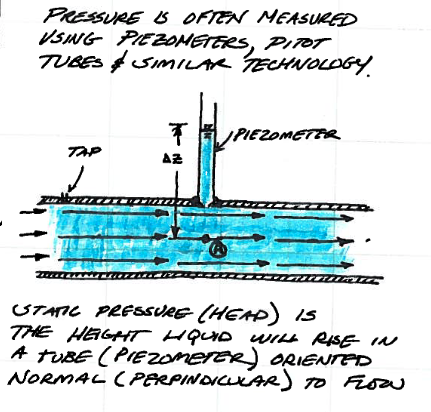 PRESSURE IS OFTEN MEASURED
USING PIEZOMETERS, PITOT
TUBES & SIMILAR TECHNOLOGY.
PIEZOMETER
TAP
ΔZ
A
STATIC PRESSURE (HEAD) IS
THE HEIGHT LIQUID WILL RISE IN
A TUBE (PIEZOMETER) ORIENTED
NORMAL (PERPINDICULAR) TO FLOW